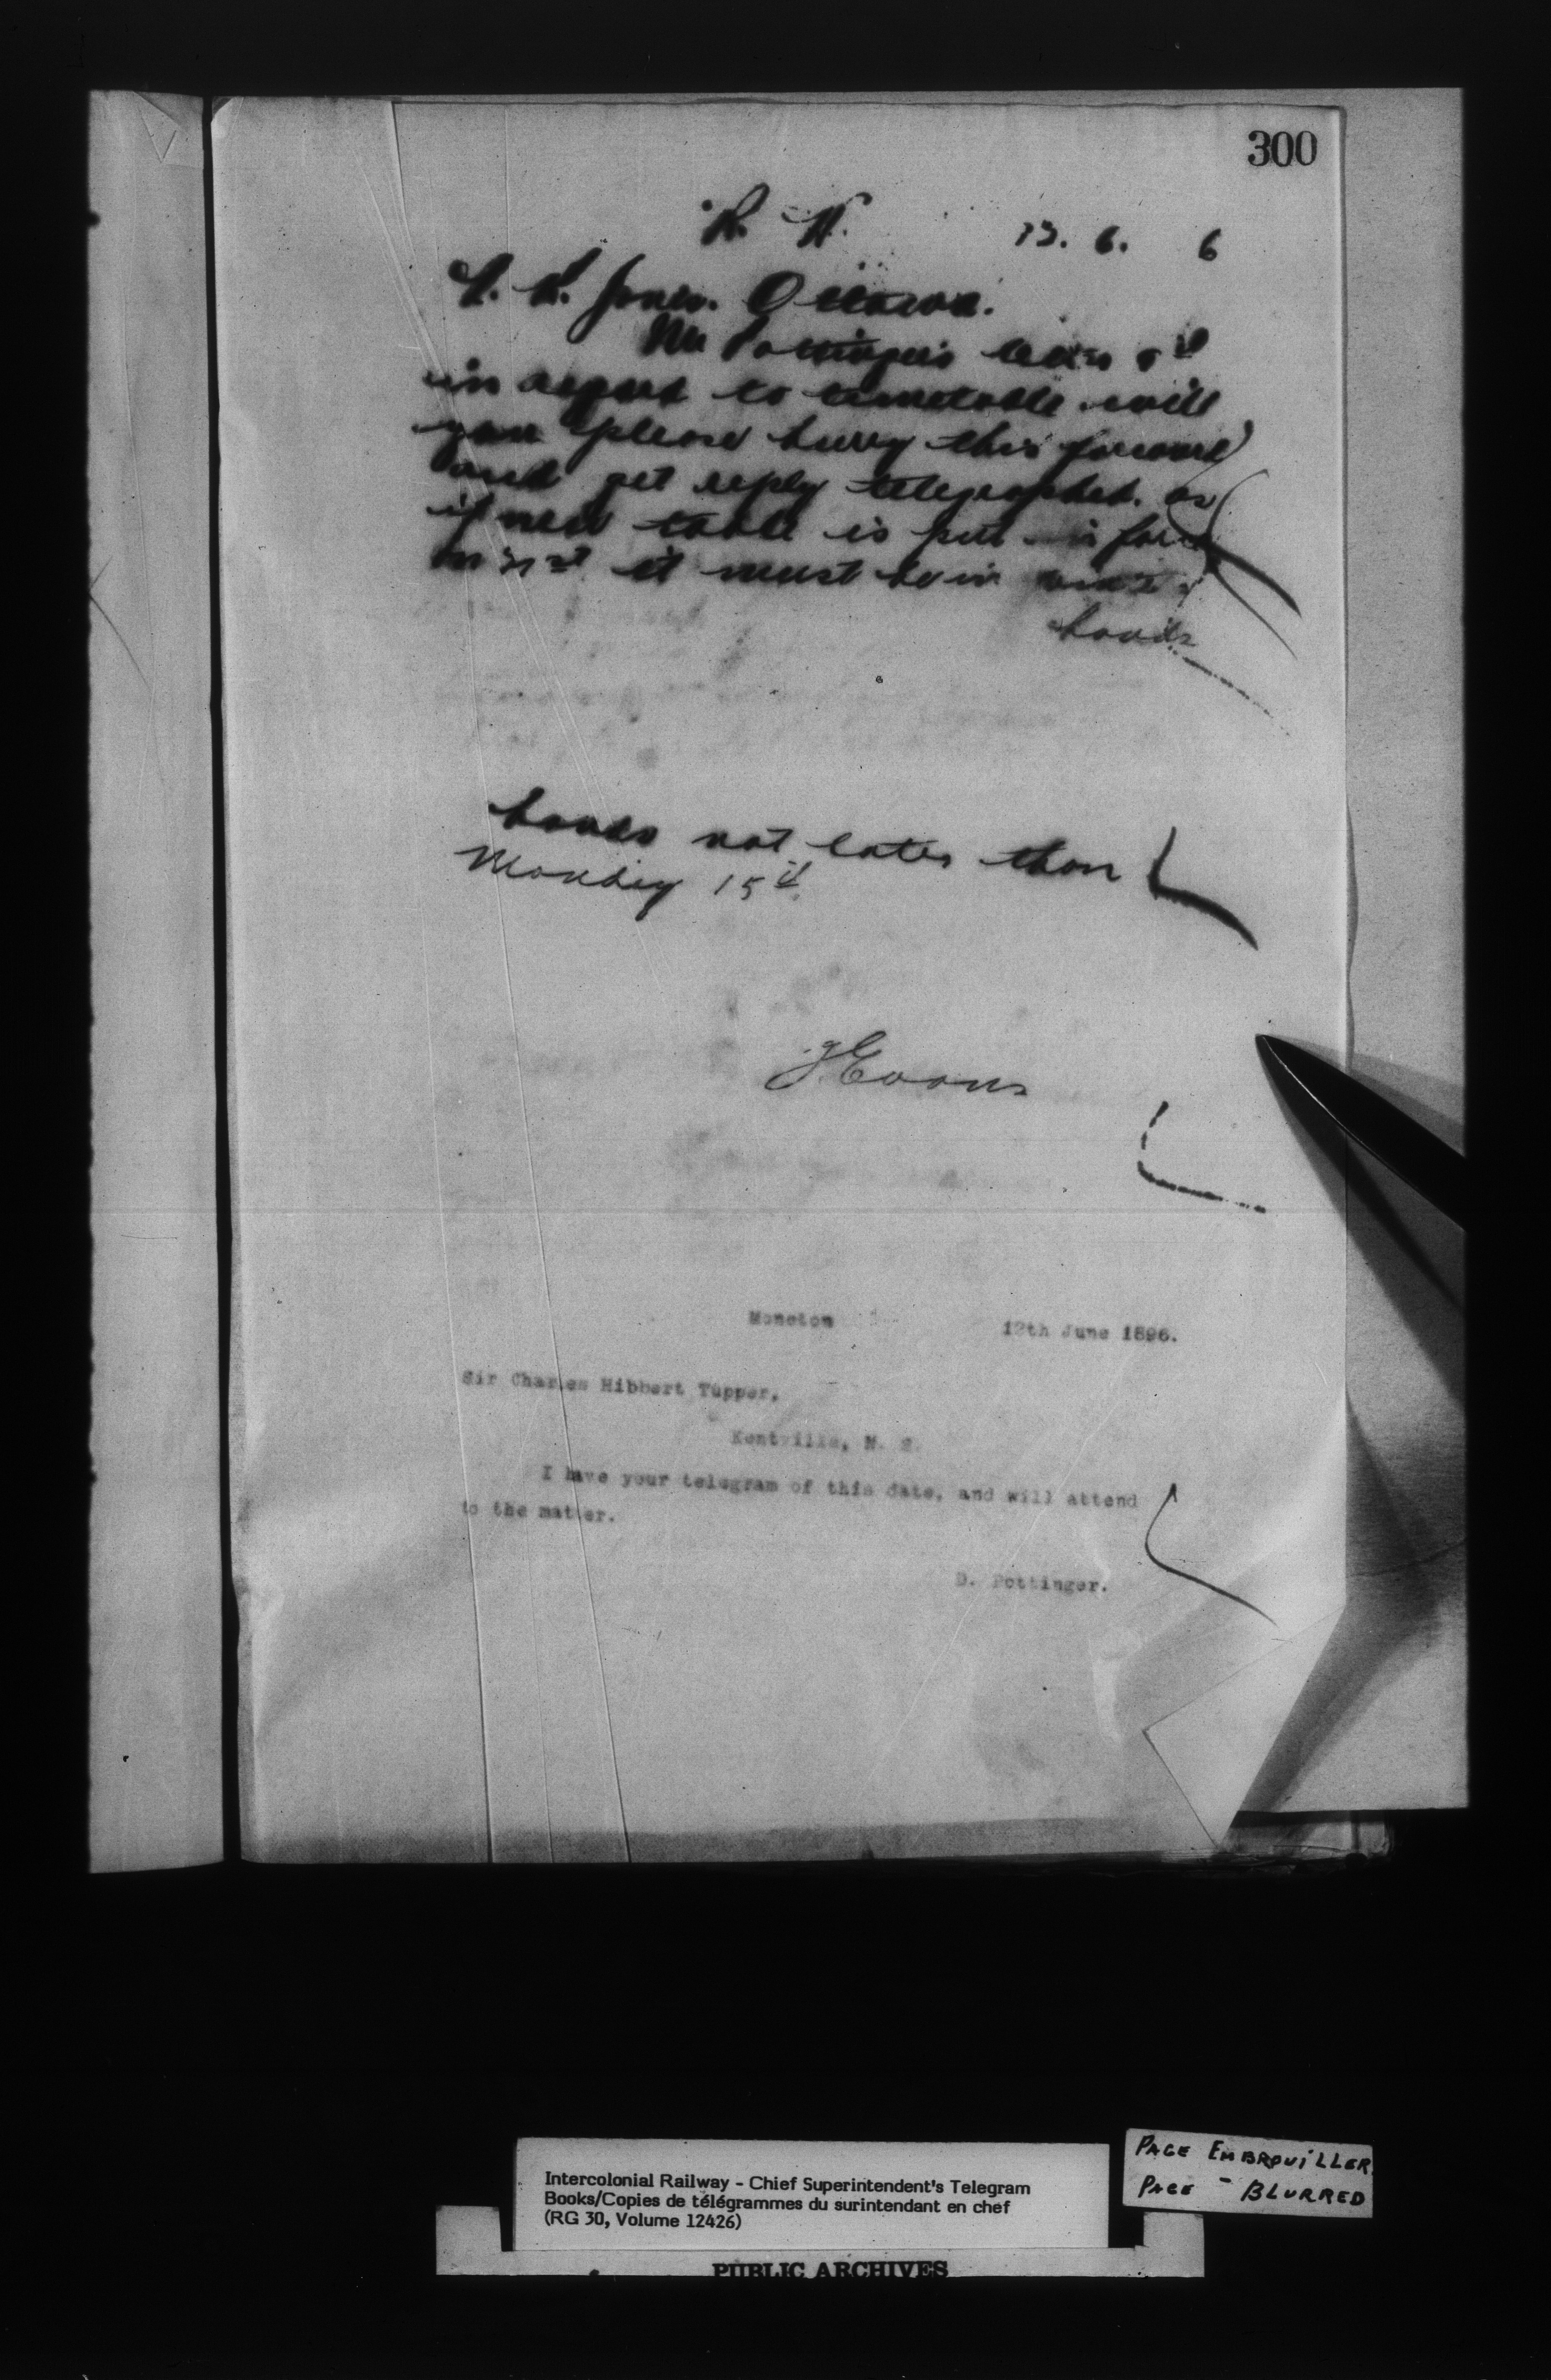 300
6
Ottawa.
Mr Pottinger's letter
in regard to timetable will
you please hurry this forward
and get reply telegraphed. as
if new table is put in force
it must be in
hands
hands not later than
Monday 15th
J Evans
Moncton 12th June 1896.
Sir Charles Hibbert Tupper,
Kentville, N. S.
I have your telegram of this date, and will attend
to the matter.
D. Pottinger.
Intercolonial Railway - Chief Superintendent's Telegram
Books/Copies de télégrammes du surintendant en chef
(RG 30, Volume 12426)
PUBLIC ARCHIVES
PAGE EMBROUILLER
PAGE - BLURRED